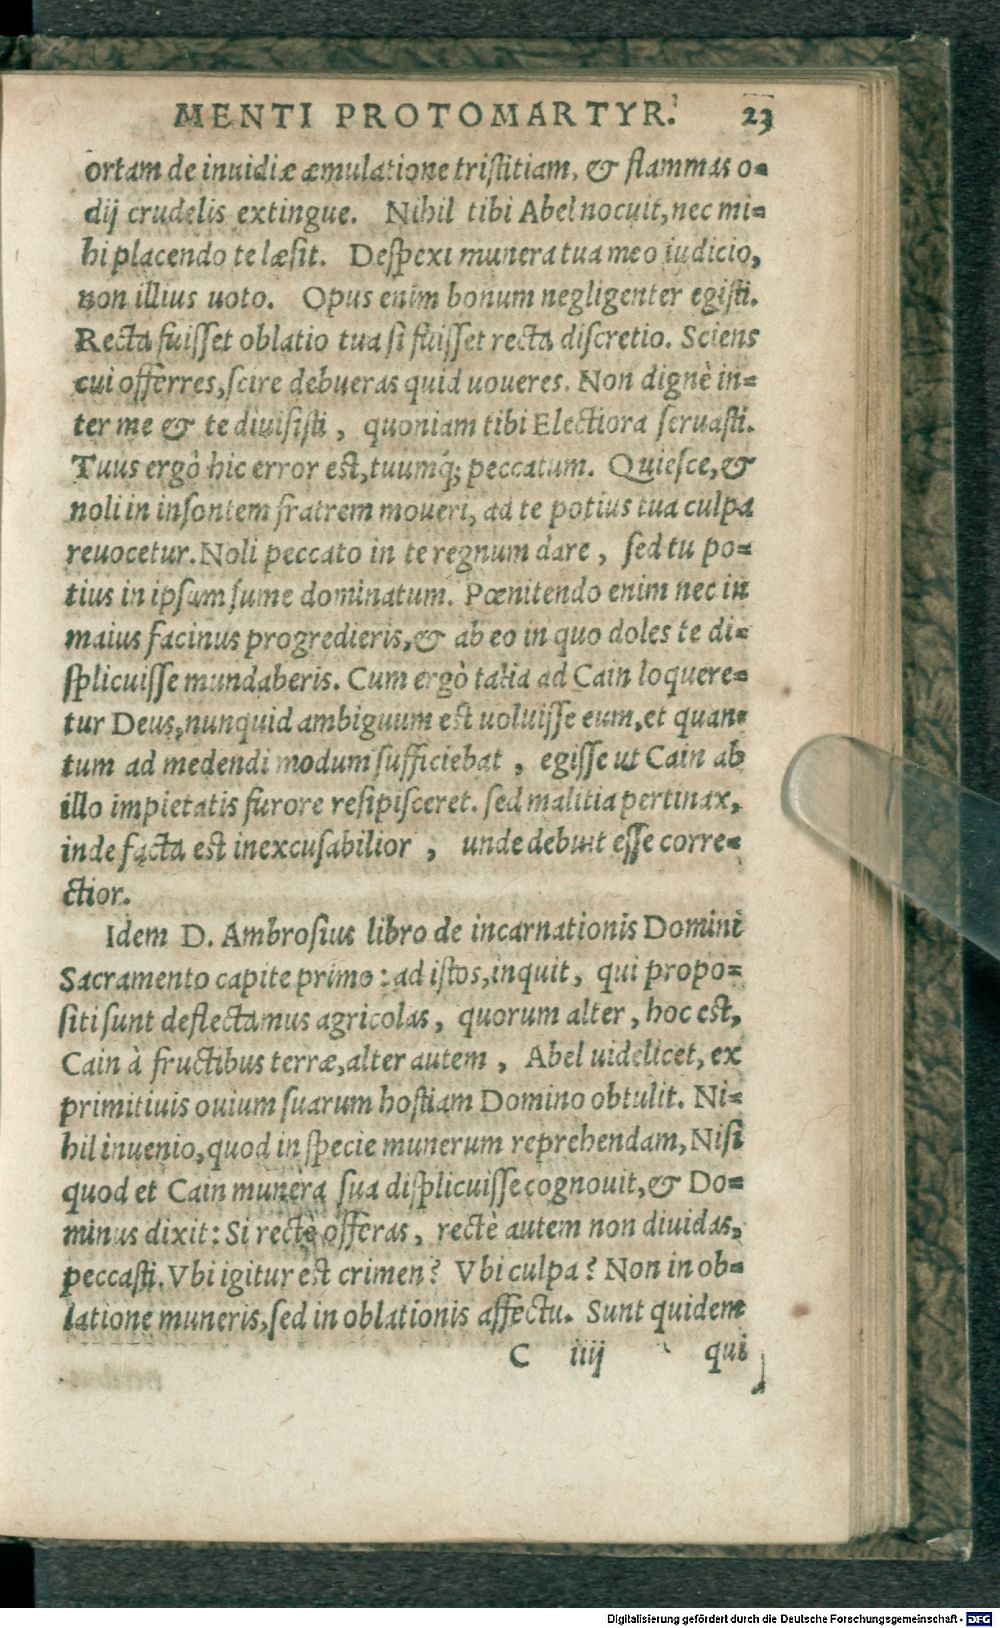 MENTI PROTOMARTYR. 23
ortam de inuidiæ æmulatione tristitiam, & flammas o=
dij crudelis extingue. Nihil tibi Abel nocuit, nec mi=
hi placendo te læsit. Despexi munera tua meo iudicio,
non illius uoto. Opus enim bonum negligenter egisti.
Recta fuisset oblatio tua si fuisset recta discretio. Sciens
cui offerres, scire debueras quid uoueres. Non dignè in=
ter me & te diuisisti, quoniam tibi Electiora seruasti.
Tuus ergò hic error est, tuumq́; peccatum. Quiesce, &
noli in insontem fratrem moueri, ad te potius tua culpa
reuocetur. Noli peccato in te regnum dare, sed tu po=
tius in ipsum sume dominatum. Pœnitendo enim nec in
maius facinus progredieris, & ab eo in quo doles te di=
splicuisse mundaberis. Cum ergò talia ad Cain loquere=
tur Deus, nunquid ambiguum est uoluisse eum, et quan=
tum ad medendi modum sufficiebat, egisse ut Cain ab
illo impietatis furore resipisceret. sed malitia pertinax,
inde facta est inexcusabilior, unde debuit esse corre=
ctior.
Idem D. Ambrosius libro de incarnationis Domini
Sacramento capite primo: ad istos, inquit, qui propo=
siti sunt deflectamus agricolas, quorum alter, hoc est,
Cain à fructibus terræ, alter autem, Abel uidelicet, ex
primitiuis ouium suarum hostiam Domino obtulit. Ni=
hil inuenio, quod in specie munerum reprehendam, Nisi
quod et Cain munera sua displicuisse cognouit, & Do=
minus dixit: Si rectè offeras, rectè autem non diuidas,
peccasti. Vbi igitur est crimen? Vbi culpa? Non in ob=
latione muneris, sed in oblationis affectu. Sunt quidem
C iiij qui
Digitalisierung gefördert durch die Deutsche Forschungsgemeinschaft - DFG